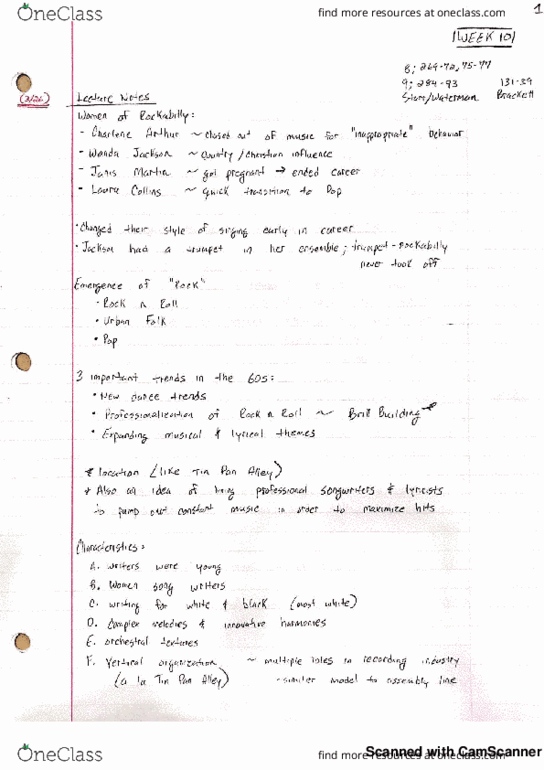 OneClass
find more resources at oneclass.com
1
WEEK 10
8; 269-72, 75-77
9; 284-93 131-39
Starr/Waterman Brackett
Lecture Notes
Women of Rockabilly:
- Charlene Arthur ~ closed out of music for "inappropriate" behavior
- Wanda Jackson ~ country/christian influence
- Janis Martin ~ got pregnant → ended career
- Laura Collins ~ quick transition to Pop
• Changed their style of singing early in career
• Jackson had a trumpet in her ensemble; trumpet-rockabilly
never took off
Emergence of "Rock"
• Rock n Roll
• Urban Folk
• Pop
3 important trends in the 60s:
• New dance trends
• Professionalization of Rock n Roll ~ Brill Building*
• Expanding musical & lyrical themes
* location (like Tin Pan Alley)
* Also an idea of professional songwriters & lyricists
to pump out constant music in order to maximize hits
Characteristics:
A. writers were young
B. Women song writers
C. writing for white & black (most white)
D. Complex melodies & innovative harmonies
E. orchestral textures
F. Vertical organization ~ multiple roles in recording industry
(a la Tin Pan Alley) - similar model to assembly line
OneClass
find more resources at oneclass.com
Scanned with CamScanner